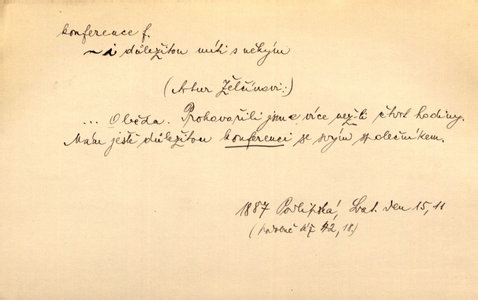 konference f.
~ i důležitou míti s někým
(Artur Želínovi:)
... Oběda. Prohovořili jsme více nežli čtvrt hodiny.
Mám ještě důležitou konferenci se svým společníkem.
1887 Podlipská, den 15, 11